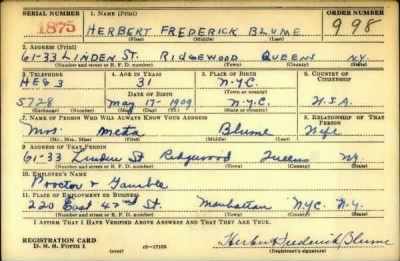 SERIAL NUMBER 1. NAME (Print) ORDER NUMBER
1875 HERBERT FREDERICK BLUME 998
(First) (Middle) (Last)
2. ADDRESS (Print)
61-33 LINDEN ST. RIDGEWOOD QUEENS N.Y.
(Number and street or R. F. D. number) (Town) (County) (State)
3. TELEPHONE 4. AGE IN YEARS 5. PLACE OF BIRTH 6. COUNTRY OF CITIZENSHIP
HEG 3 31 N.Y.C.
DATE OF BIRTH (Town or county)
5728 May 17-1909 N.Y.C. U.S.A.
(Exchange) (Number) (Mo.) (Day) (Yr.) (State or country)
7. NAME OF PERSON WHO WILL ALWAYS KNOW YOUR ADDRESS 8. RELATIONSHIP OF THAT PERSON
Mrs. Meta Blume Wife
(Mr., Mrs., Miss) (First) (Middle) (Last)
9. ADDRESS OF THAT PERSON
61-33 Linden St Ridgewood Queens N.Y.
(Number and street or R. F. D. number) (Town) (County) (State)
10. EMPLOYER'S NAME
Proctor & Gamble
11. PLACE OF EMPLOYMENT OR BUSINESS
220 East 42nd St. Manhattan N.Y.C. N.Y.
(Number and street or R. F. D. number) (Town) (County) (State)
I AFFIRM THAT I HAVE VERIFIED ABOVE ANSWERS AND THAT THEY ARE TRUE.
REGISTRATION CARD Herbert Frederick Blume
D. S. S. Form 1 (over) 16-17105 (Registrant's signature)